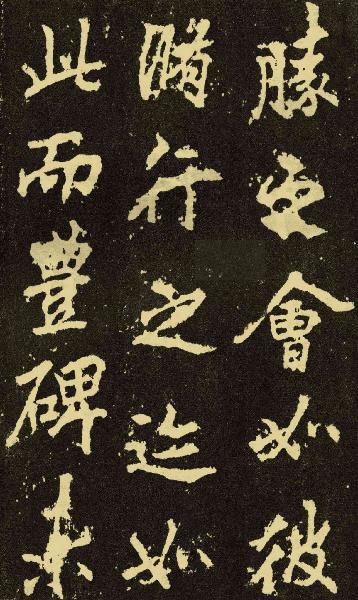 勝之會如彼
脩行之迹如
此而豐碑未